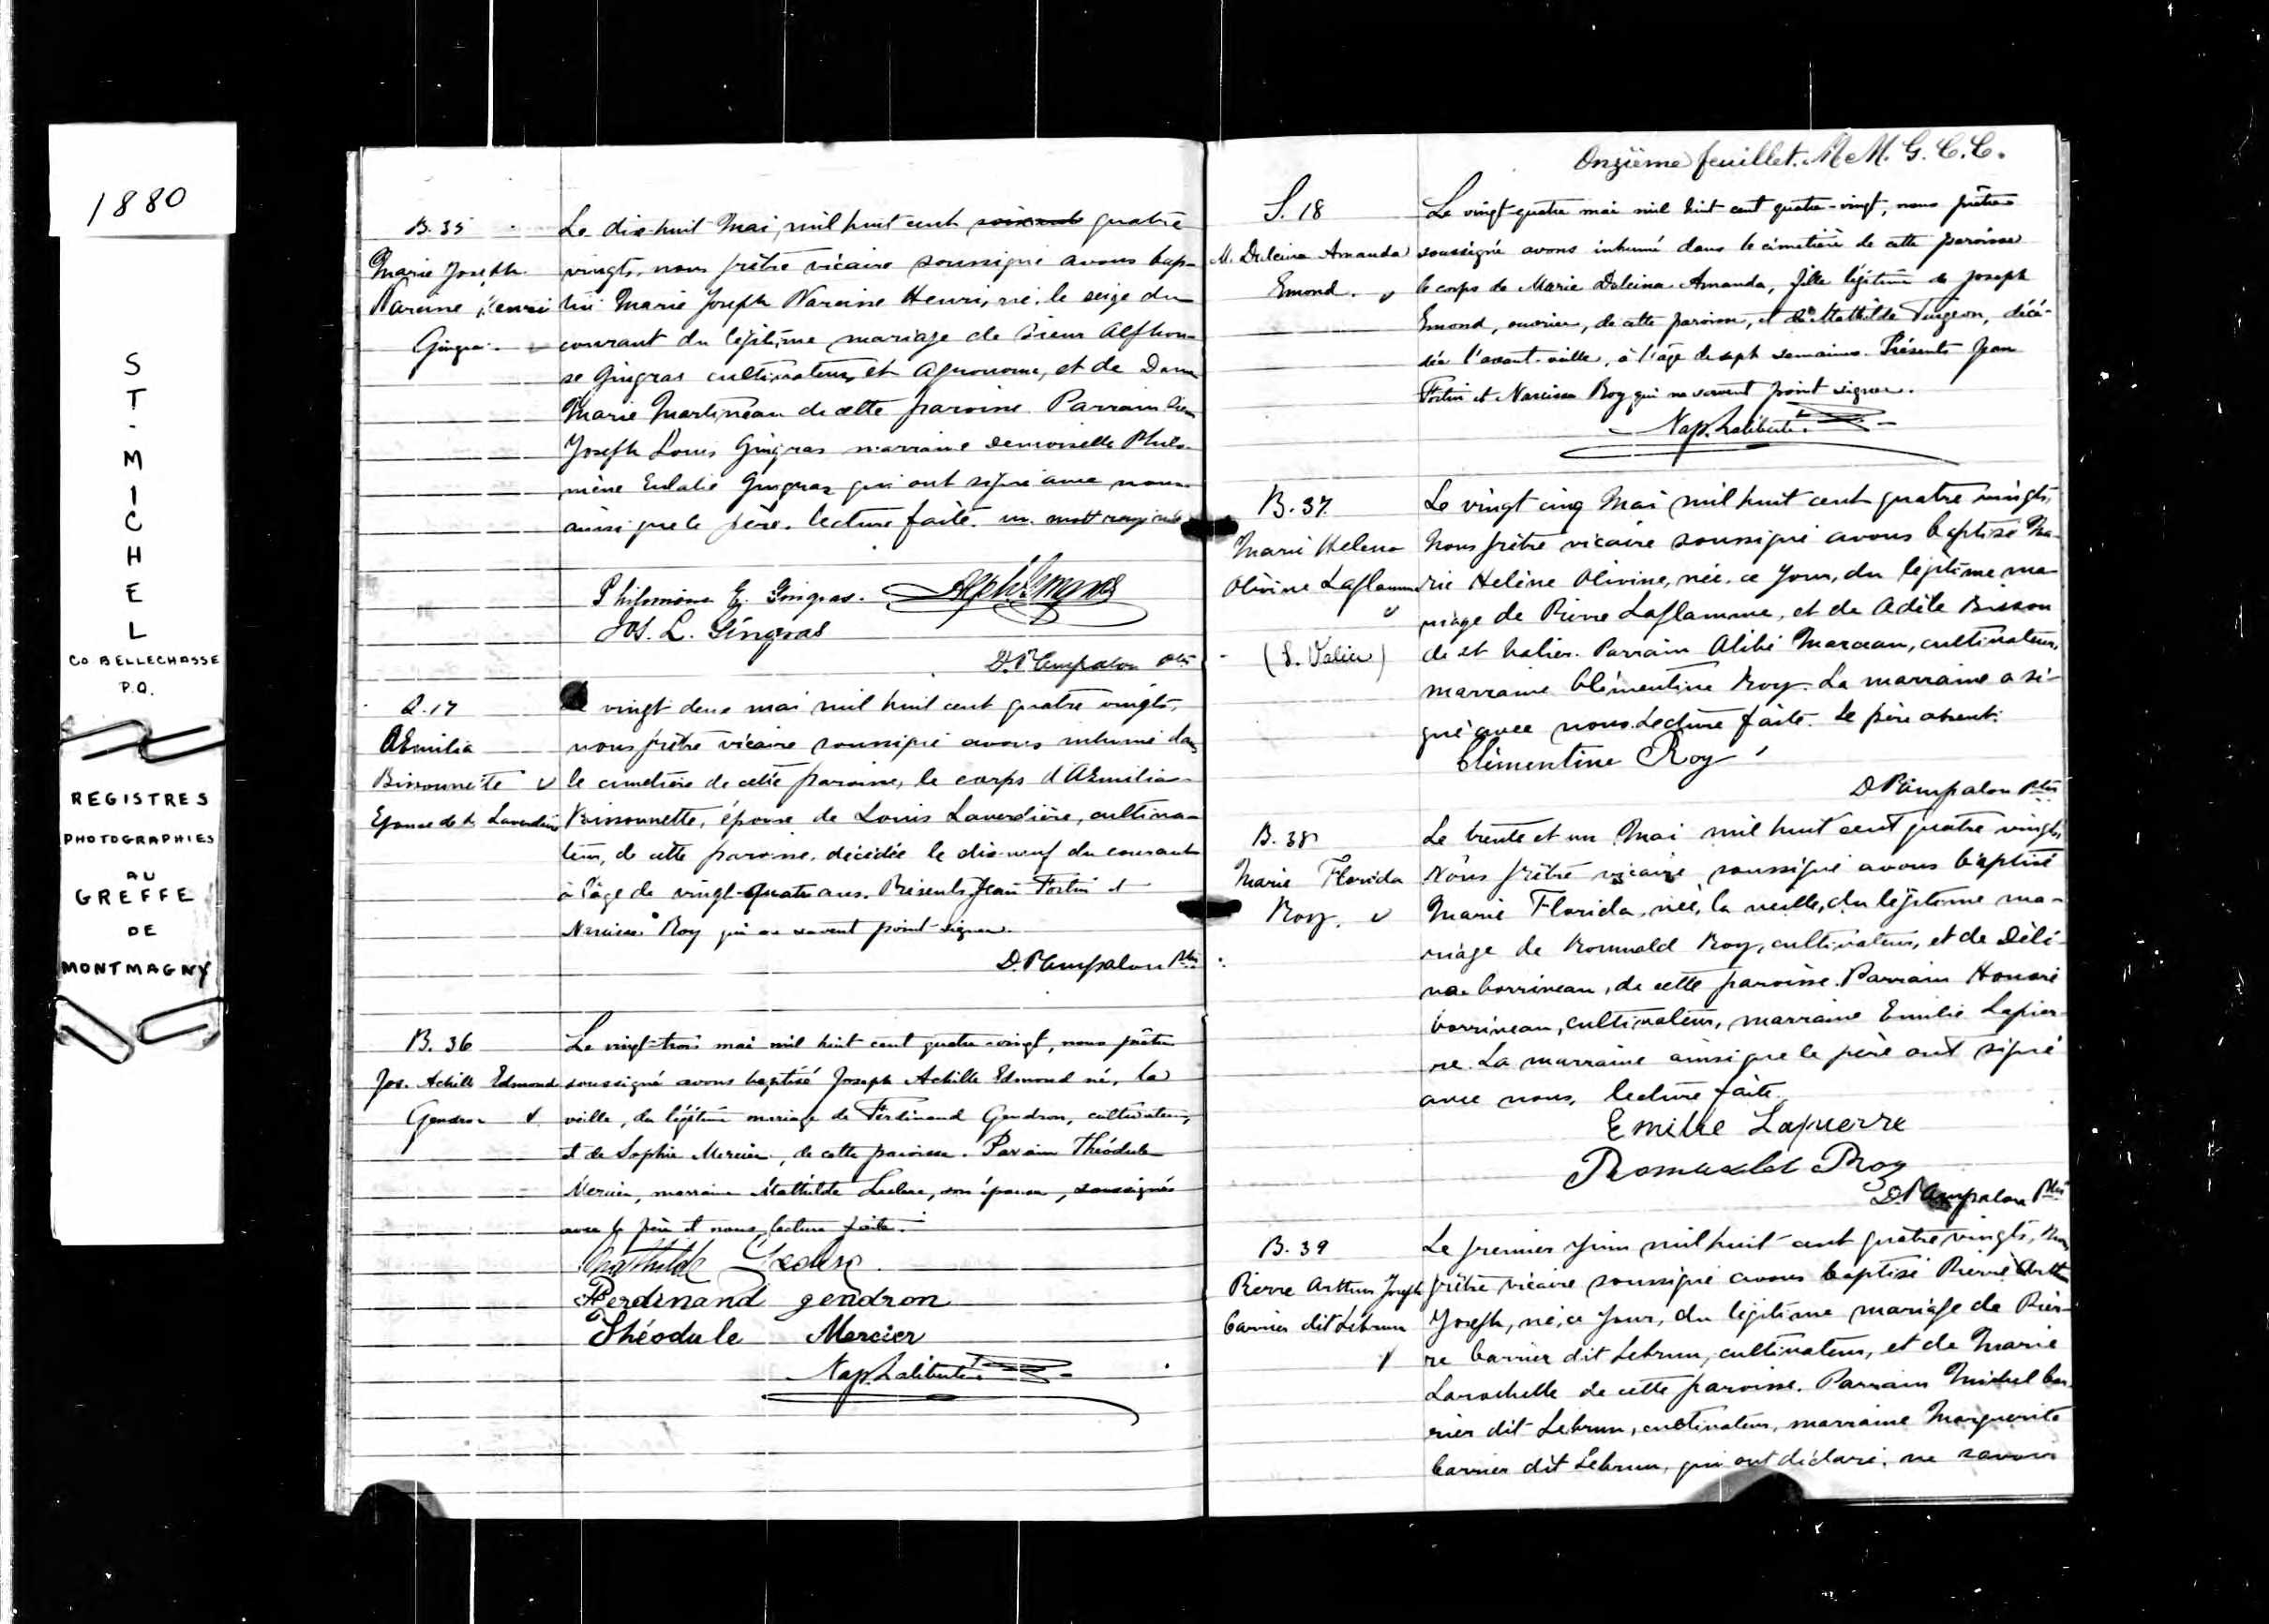 1880
ST. MICHEL
CO BELLECHASSE
P.Q.
REGISTRES
PHOTOGRAPHIES
AU
GREFFE
DE
MONTMAGNY
B. 35
Marie Joseph
Narcisse Henri
Gingras
Le dix-huit Mai, mil huit cent soixante quatre
vingts, nous prêtre vicaire soussigné avons bap-
tisé Marie Joseph Narcisse Henri, né, le seize du
courant du légitime mariage de Sieur Alphon-
se Gingras cultivateur et agronome, et de Dame
Marie Martineau de cette paroisse. Parrain Sieur
Joseph Louis Gingras marraine demoiselle Philo-
mène Eulalie Gingras qui ont signé avec nous
ainsi que le père. lecture faite. un mot rayé nul
Philomène E. Gingras.
Jos. L. Gingras
D. Pampalon Ptre
S. 17
AEmilia
Bissonnette
Epouse de L. Laverdière
Le vingt deux mai mil huit cent quatre vingts,
nous prêtre vicaire soussigné avons inhumé dans
le cimetière de cette paroisse, le corps d'AEmilia
Bissonnette, épouse de Louis Laverdière, cultiva-
teur, de cette paroisse, décédée le dix-neuf du courant
à l'âge de vingt-quatre ans. Présents Jean Fortin et
Narcisse Roy qui ne savent point signer.
D. Pampalon Ptre
B. 36
Jos. Achille Edmond
Gendron
Le vingt-trois mai mil huit cent quatre-vingt, nous prêtre
soussigné avons baptisé Joseph Achille Edmond né, la
veille, du légitime mariage de Ferdinand Gendron, cultivateur,
et de Sophie Mercier, de cette paroisse. Parrain Théodule
Mercier, marraine Mathilde Leclerc, son épouse, soussignés
avec le père et nous, lecture faite.
Mathilde Leclerc
Ferdinand gendron
Théodule Mercier
Nap. Laliberté Ptre
Onzième feuillet. M M. G. C. C.
S. 18
M. Dulcina Amanda
Emond.
Le vingt-quatre mai mil huit cent quatre-vingt, nous prêtre
soussigné avons inhumé dans le cimetière de cette paroisse
le corps de Marie Dulcina Amanda, fille légitime de Joseph
Emond, ouvrier, de cette paroisse, et de Mathilde Turgeon, décé-
dée l'avant-veille, à l'âge de sept semaines. Présents Jean
Fortin et Narcisse Roy qui ne savent point signer.
Nap. Laliberté Ptre
B. 37
Marie Helene
Olivine Laflamme
(S. Valier)
Le vingt cinq Mai mil huit cent quatre vingts,
Nous prêtre vicaire soussigné avons baptisé Ma-
rie Helène Olivine, née, ce jour, du légitime ma-
riage de Pierre Laflamme, et de Adèle Bisson
de st Valier. Parrain Alibé Marceau, cultivateur,
marraine Clémentine Roy. La marraine a si-
gné avec nous. Lecture faite. Le père absent.
Clémentine Roy
D Pampalon Ptre
B. 38
Marie Florida
Roy.
Le trente et un Mai mil huit cent quatre vingts,
Nous prêtre vicaire soussigné avons baptisé
Marie Florida, née, la veille, du légitime ma-
riage de Romuald Roy, cultivateur, et de Déli-
na Corriveau, de cette paroisse. Parrain Honoré
Corriveau, cultivateur, marraine Emilie Lapier-
re. La marraine ainsi que le père ont signé
avec nous, lecture faite.
Emilie Lapierre
Romuald Roy
D. Pampalon Ptre
B. 39
Pierre Arthur Joseph
Carrier dit Lebrun
Le premier juin mil huit cent quatre vingts, Nous
prêtre vicaire soussigné avons baptisé Pierre Arthur
Joseph, né, ce jour, du légitime mariage de Pier-
re Carrier dit Lebrun, cultivateur, et de Marie
Larochelle de cette paroisse. Parrain Michel Car-
rier dit Lebrun, cultivateur, marraine Marguerite
Carrier dit Lebrun, qui ont déclaré ne savoir